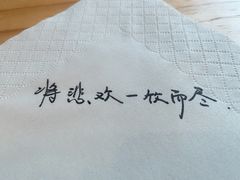 将悲、欢一饮而尽